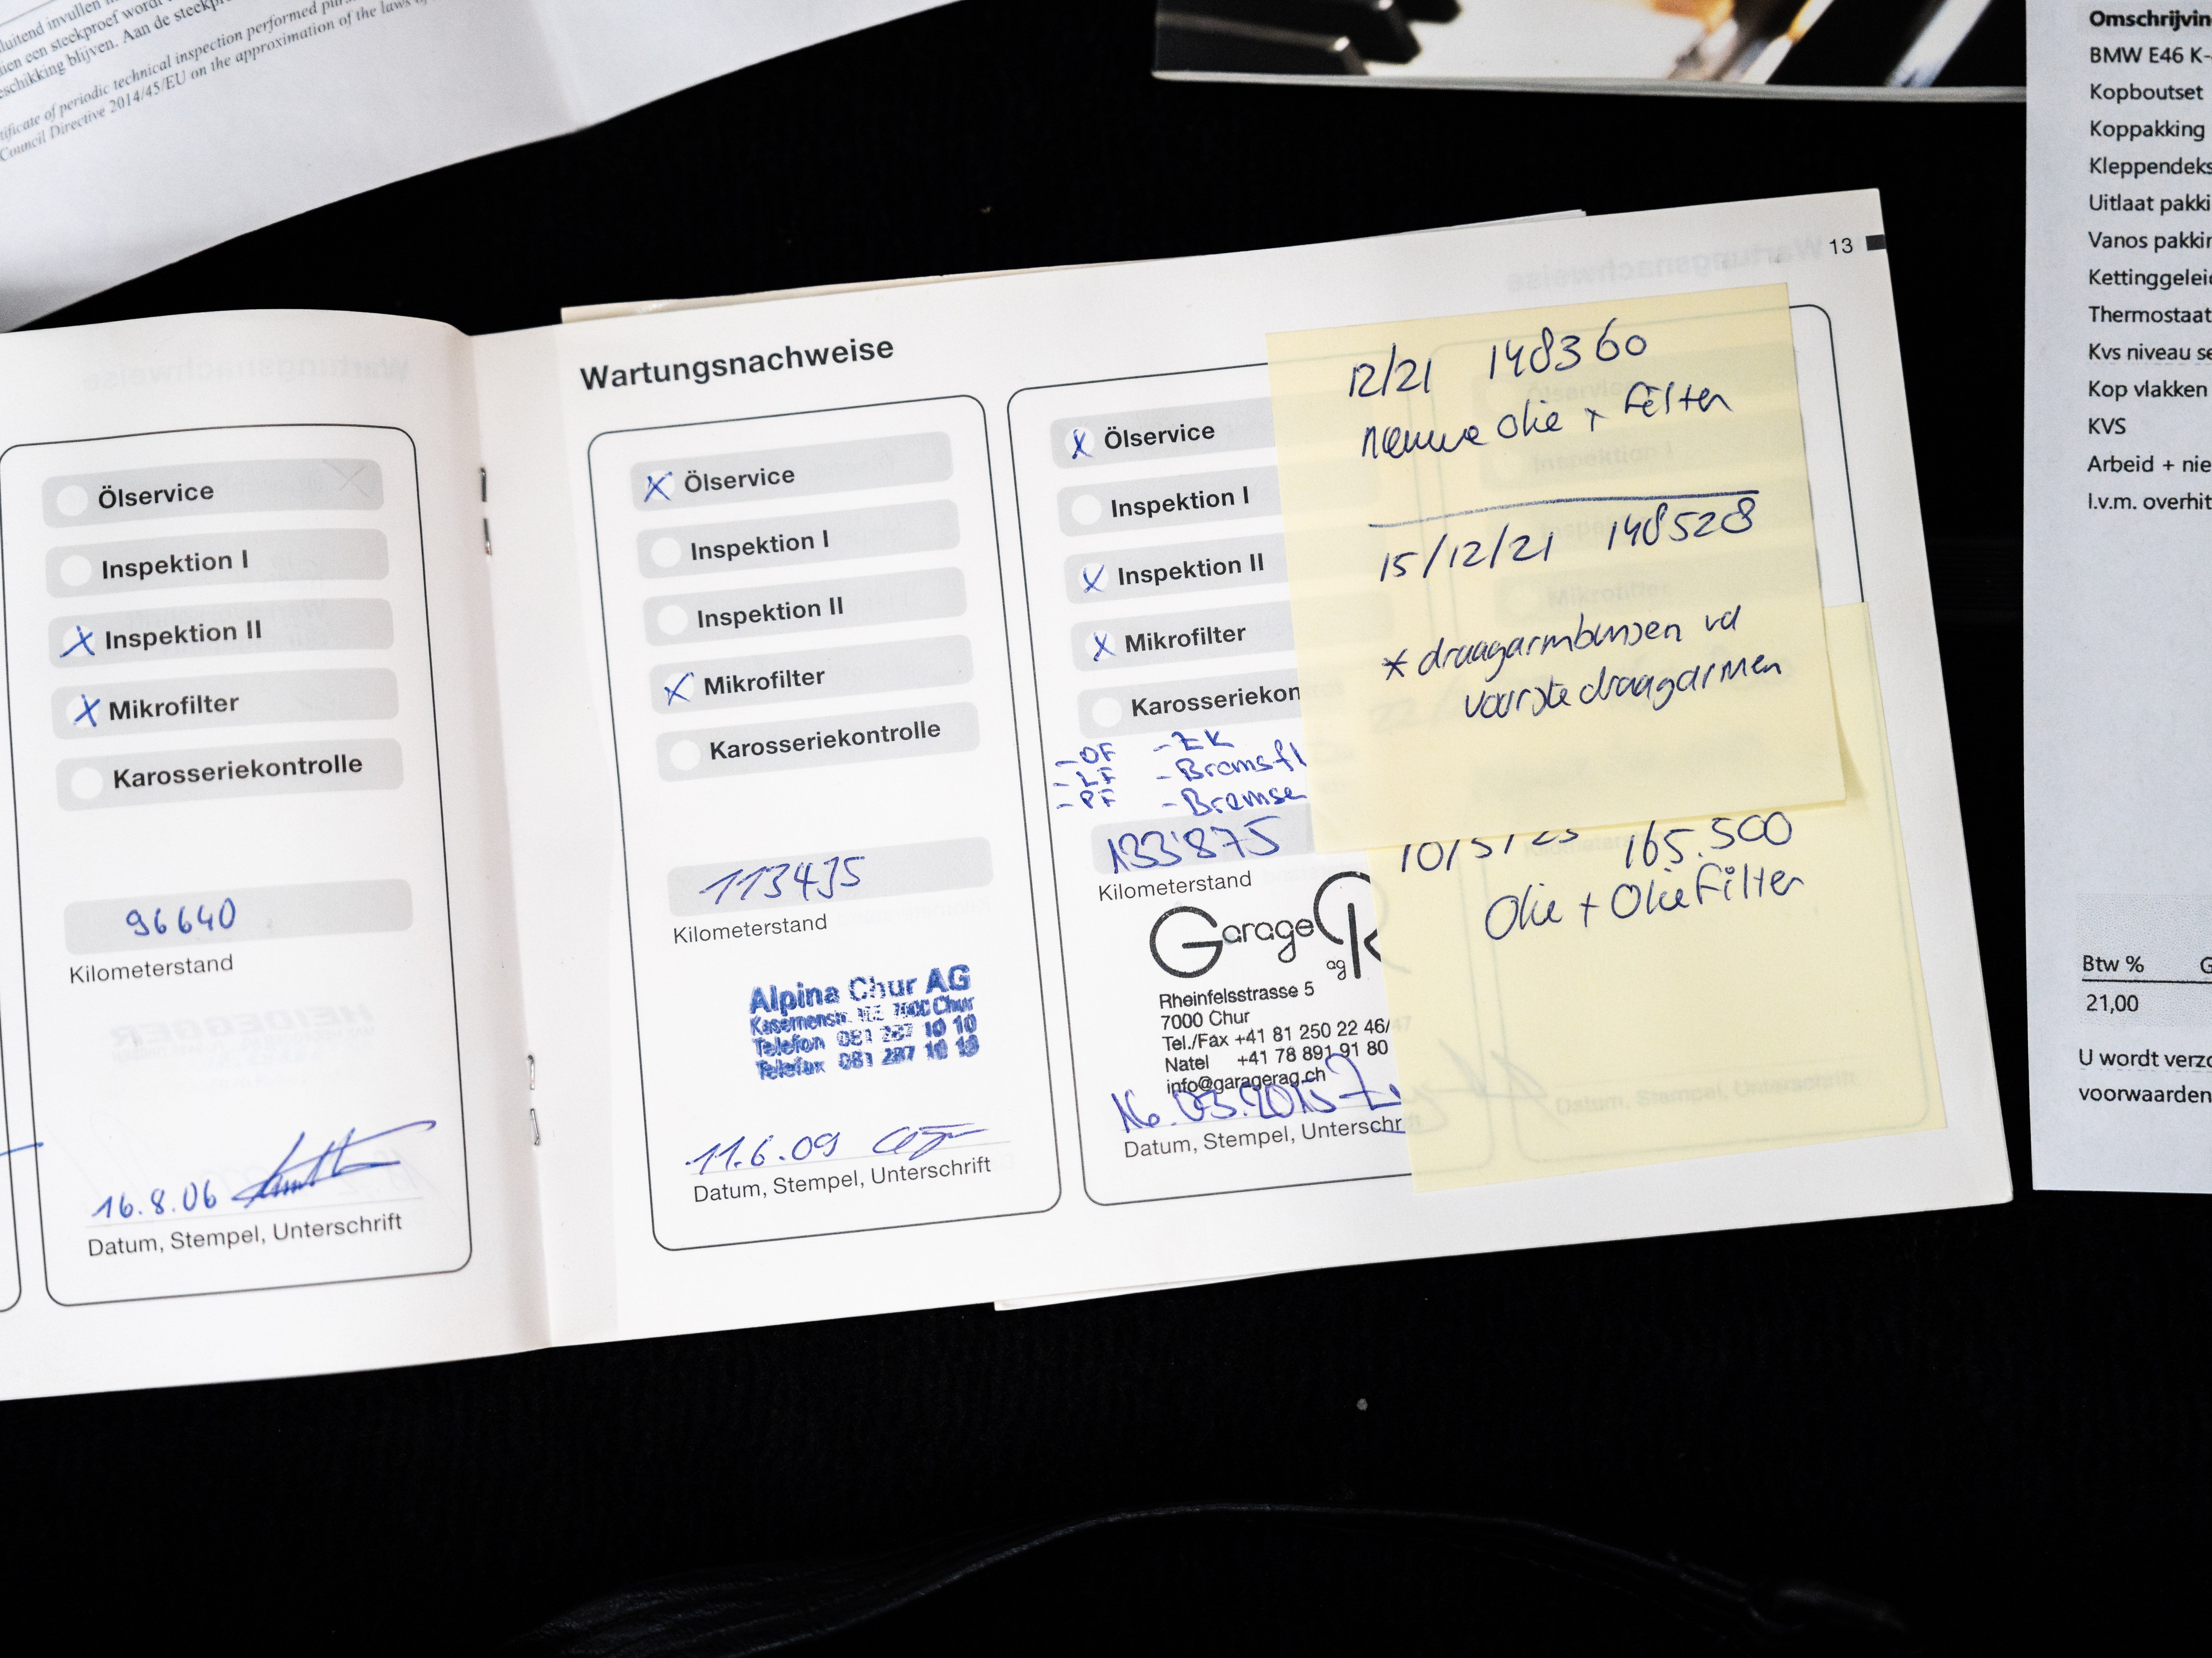 luitend invullen
een steekproef wordt
schikking blijven. Aan de steekpr
tificate of periodic technical inspection performed
Council Directive 2014/45/EU on the approximation of the laws
Ölservice
Inspektion I
X Inspektion II
X Mikrofilter
Karosseriekontrolle
96640
Kilometerstand
16.8.06
Datum, Stempel, Unterschrift
Wartungsnachweise
X Ölservice
Inspektion I
Inspektion II
X Mikrofilter
Karosseriekontrolle
113435
Kilometerstand
Alpina Chur AG
7000 Chur
Telefon 081 287 10 10
Telefax 081 287 10 18
11.6.09
Datum, Stempel, Unterschrift
13
X Ölservice
Inspektion I
X Inspektion II
X Mikrofilter
Karosseriekon
-OF -ZK
-LF -Bremsfl
-PF -Bremse
133'875
Kilometerstand
Garage R
ag
Rheinfelsstrasse 5
7000 Chur
Tel./Fax +41 81 250 22 46/
Natel +41 78 891 91 80
info@garagerag.ch
16.03.2015
Datum, Stempel, Unterschr
12/21 148360
nieuwe olie + filter
15/12/21 148528
* draagarmbussen vd
voorste draagarmen
10/5/23 165.500
Olie + Oliefilter
Omschrijvin
BMW E46 K-
Kopboutset
Koppakking
Kleppendeks
Uitlaat pakki
Vanos pakkin
Kettinggeleid
Thermostaat
Kvs niveau se
Kop vlakken
KVS
Arbeid + nie
I.v.m. overhit
Btw % G
21,00
U wordt verzo
voorwaarden